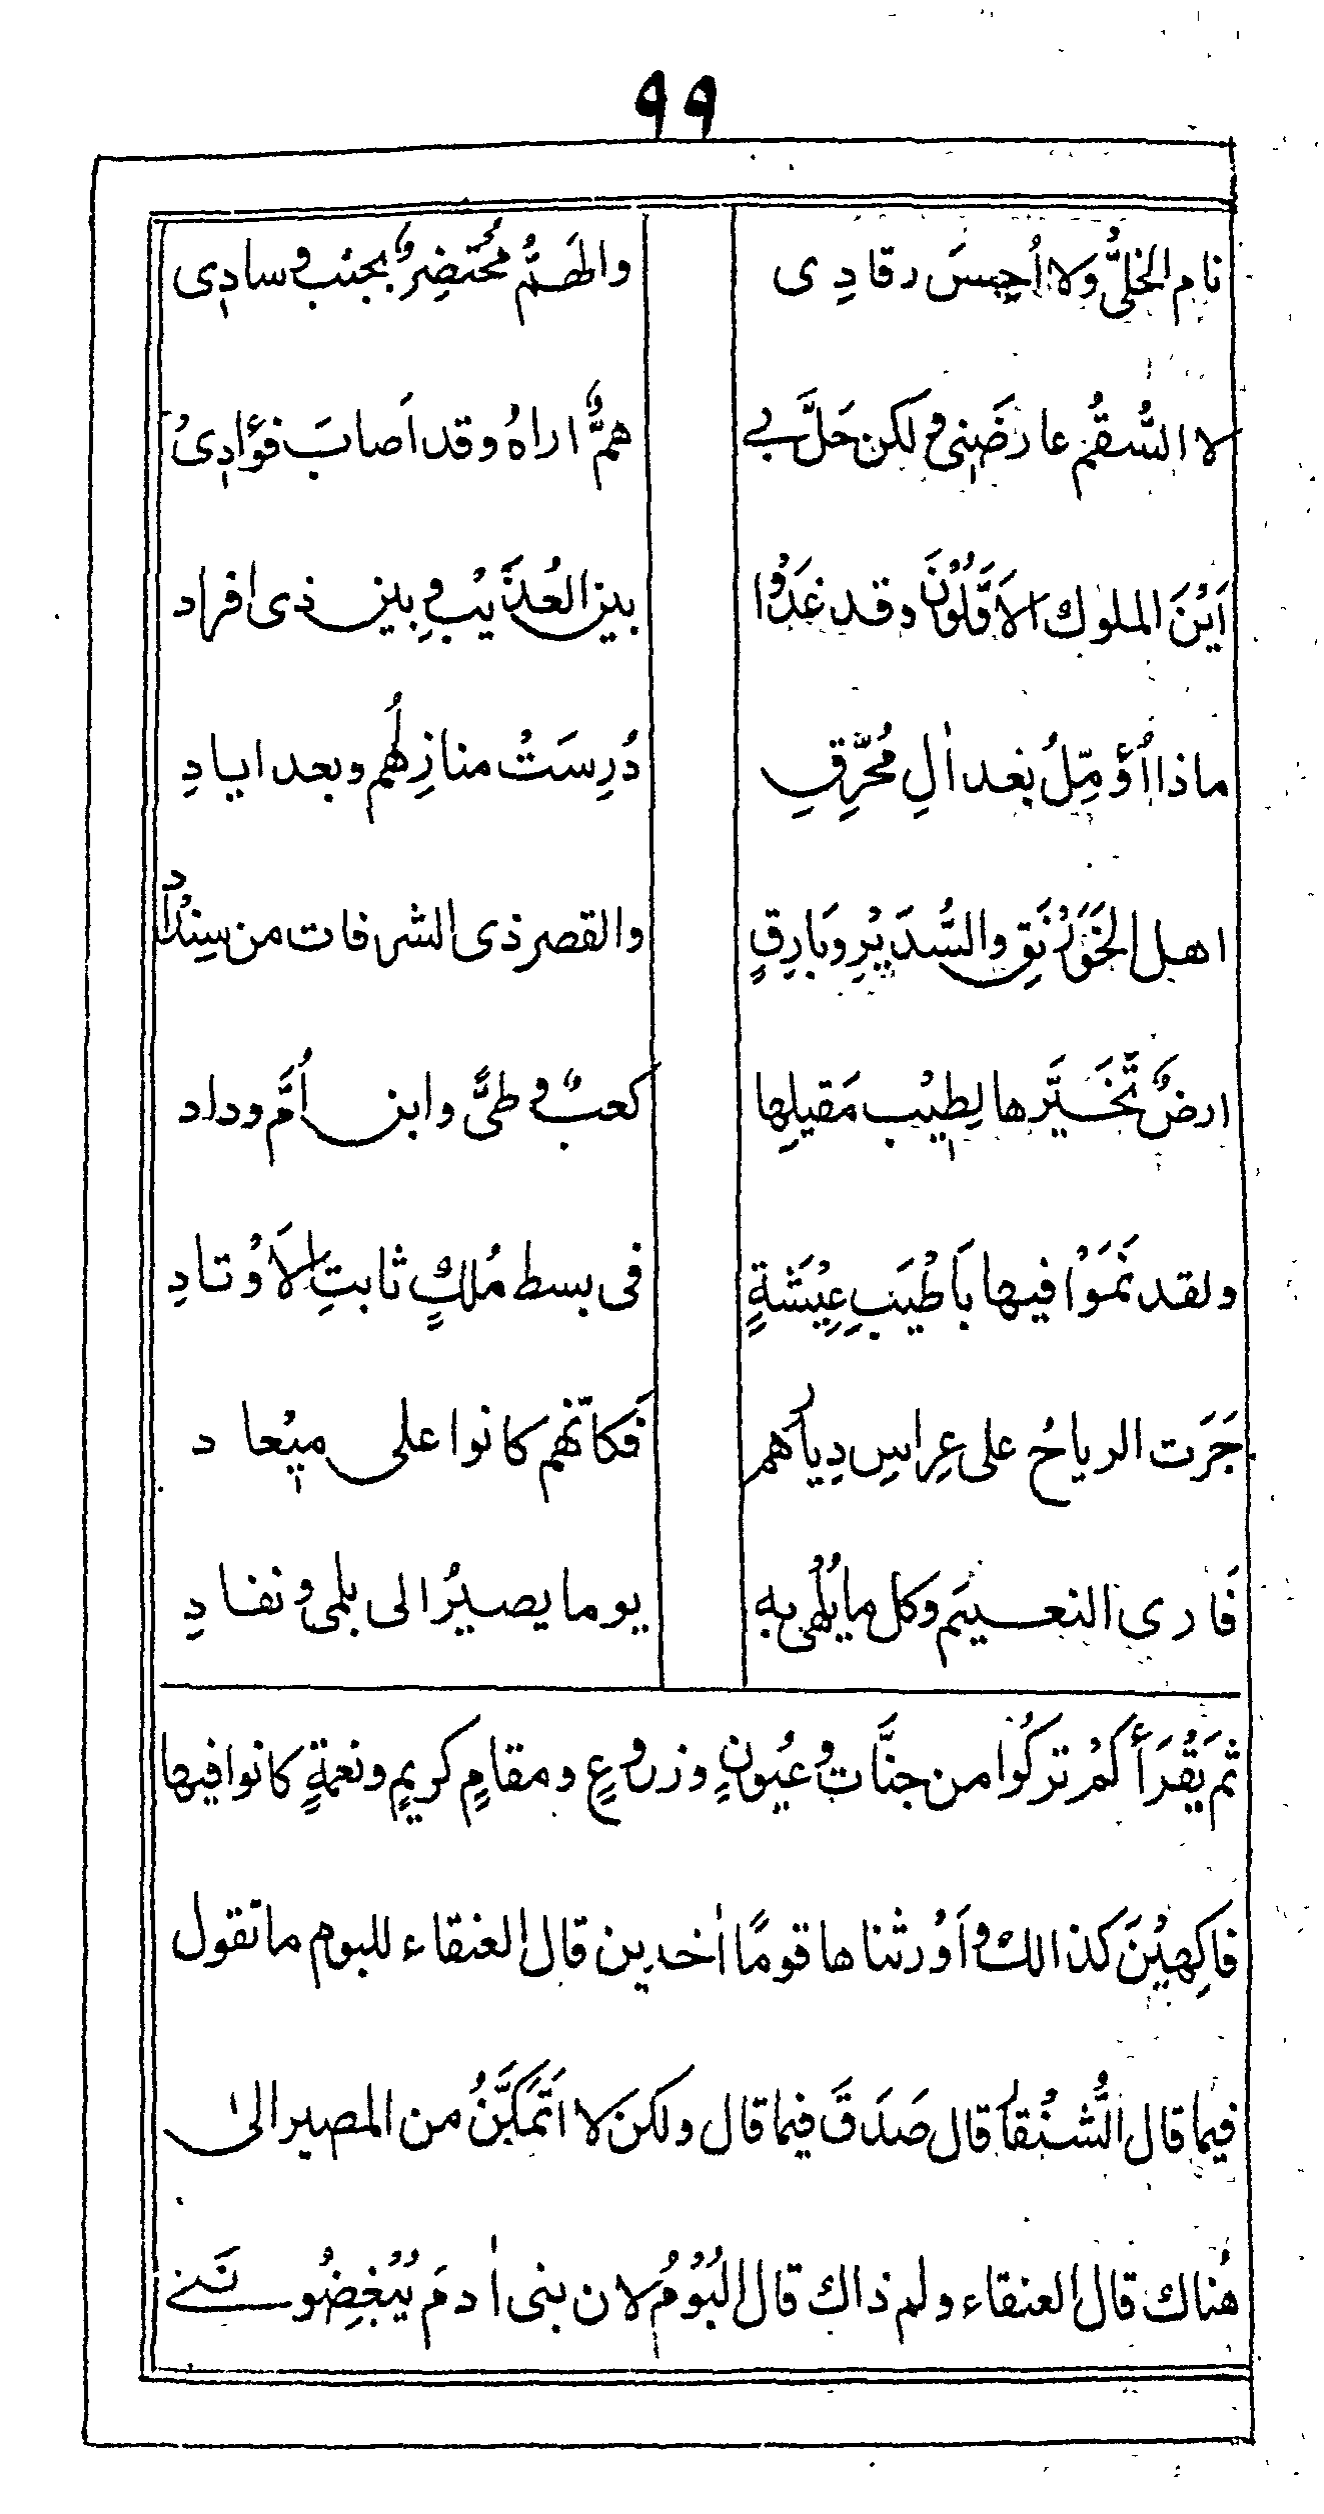 ٩٩
نام الخلىُّ ولا اُحِسسَ رقادِى والهمُّ مُحتضِرٌ بجنب وسادِى
لا السُّقمُ عارضَنِى ولكن حَلَّ بے همٌّ اراهُ وقد اَصابَ فؤادِىُ
اَيْنَ الملوك الاَوَّلُوْنَ وقد غَدَوْا بين العُذَيْبِ وبين ذى افراد
ماذا اُؤمِّلُ بعد اٰلِ مُحَرِّقٍ دُرِسَتْ منازِلُهُم وبعد ايادِ
اهل الخَوَرْنَقِ والسَّدَيْرِ وبَارِقٍ والقصر ذى الشرفات من سِنْدَاد
ارضٌ تَخَيَّرها لِطيْبِ مَقيلِها كعبٌ فى طىَّ وابن اُمَّ وداد
ولقد نَمَوْا فيها بَاَطْيَبِ عِيْشَةٍ فى بسط مُلكٍ ثابتِ الاَوْتادِ
جَرَت الرياحُ على عِراسِ دِيارهم فَكانّهم كانوا على مِيْعاد
فَارى النعيم وكل ما يُلْهى به يوما يصيرُ الى بلى ونفادِ
ثم يَقْرَأ كَمْ تركُوا من جنَّات وعُيونٍ وزروعٍ ومقامٍ كريمٍ ونعمةٍ كانوا فيها
فاكِهِيْنَ كذالك واَوْرثناها قومًا اٰخرين قال العنقاء للبوم ما تقول
فيما قال الشَّنْقَا قال صَدَقَ فيما قال ولكن لا اَتَمَكَّنُ من المصير الىٰ
هُناك قال العنقاء ولم ذاك قال البُوْمُ لان بنى اٰدمَ يُبْغِضُونَنے